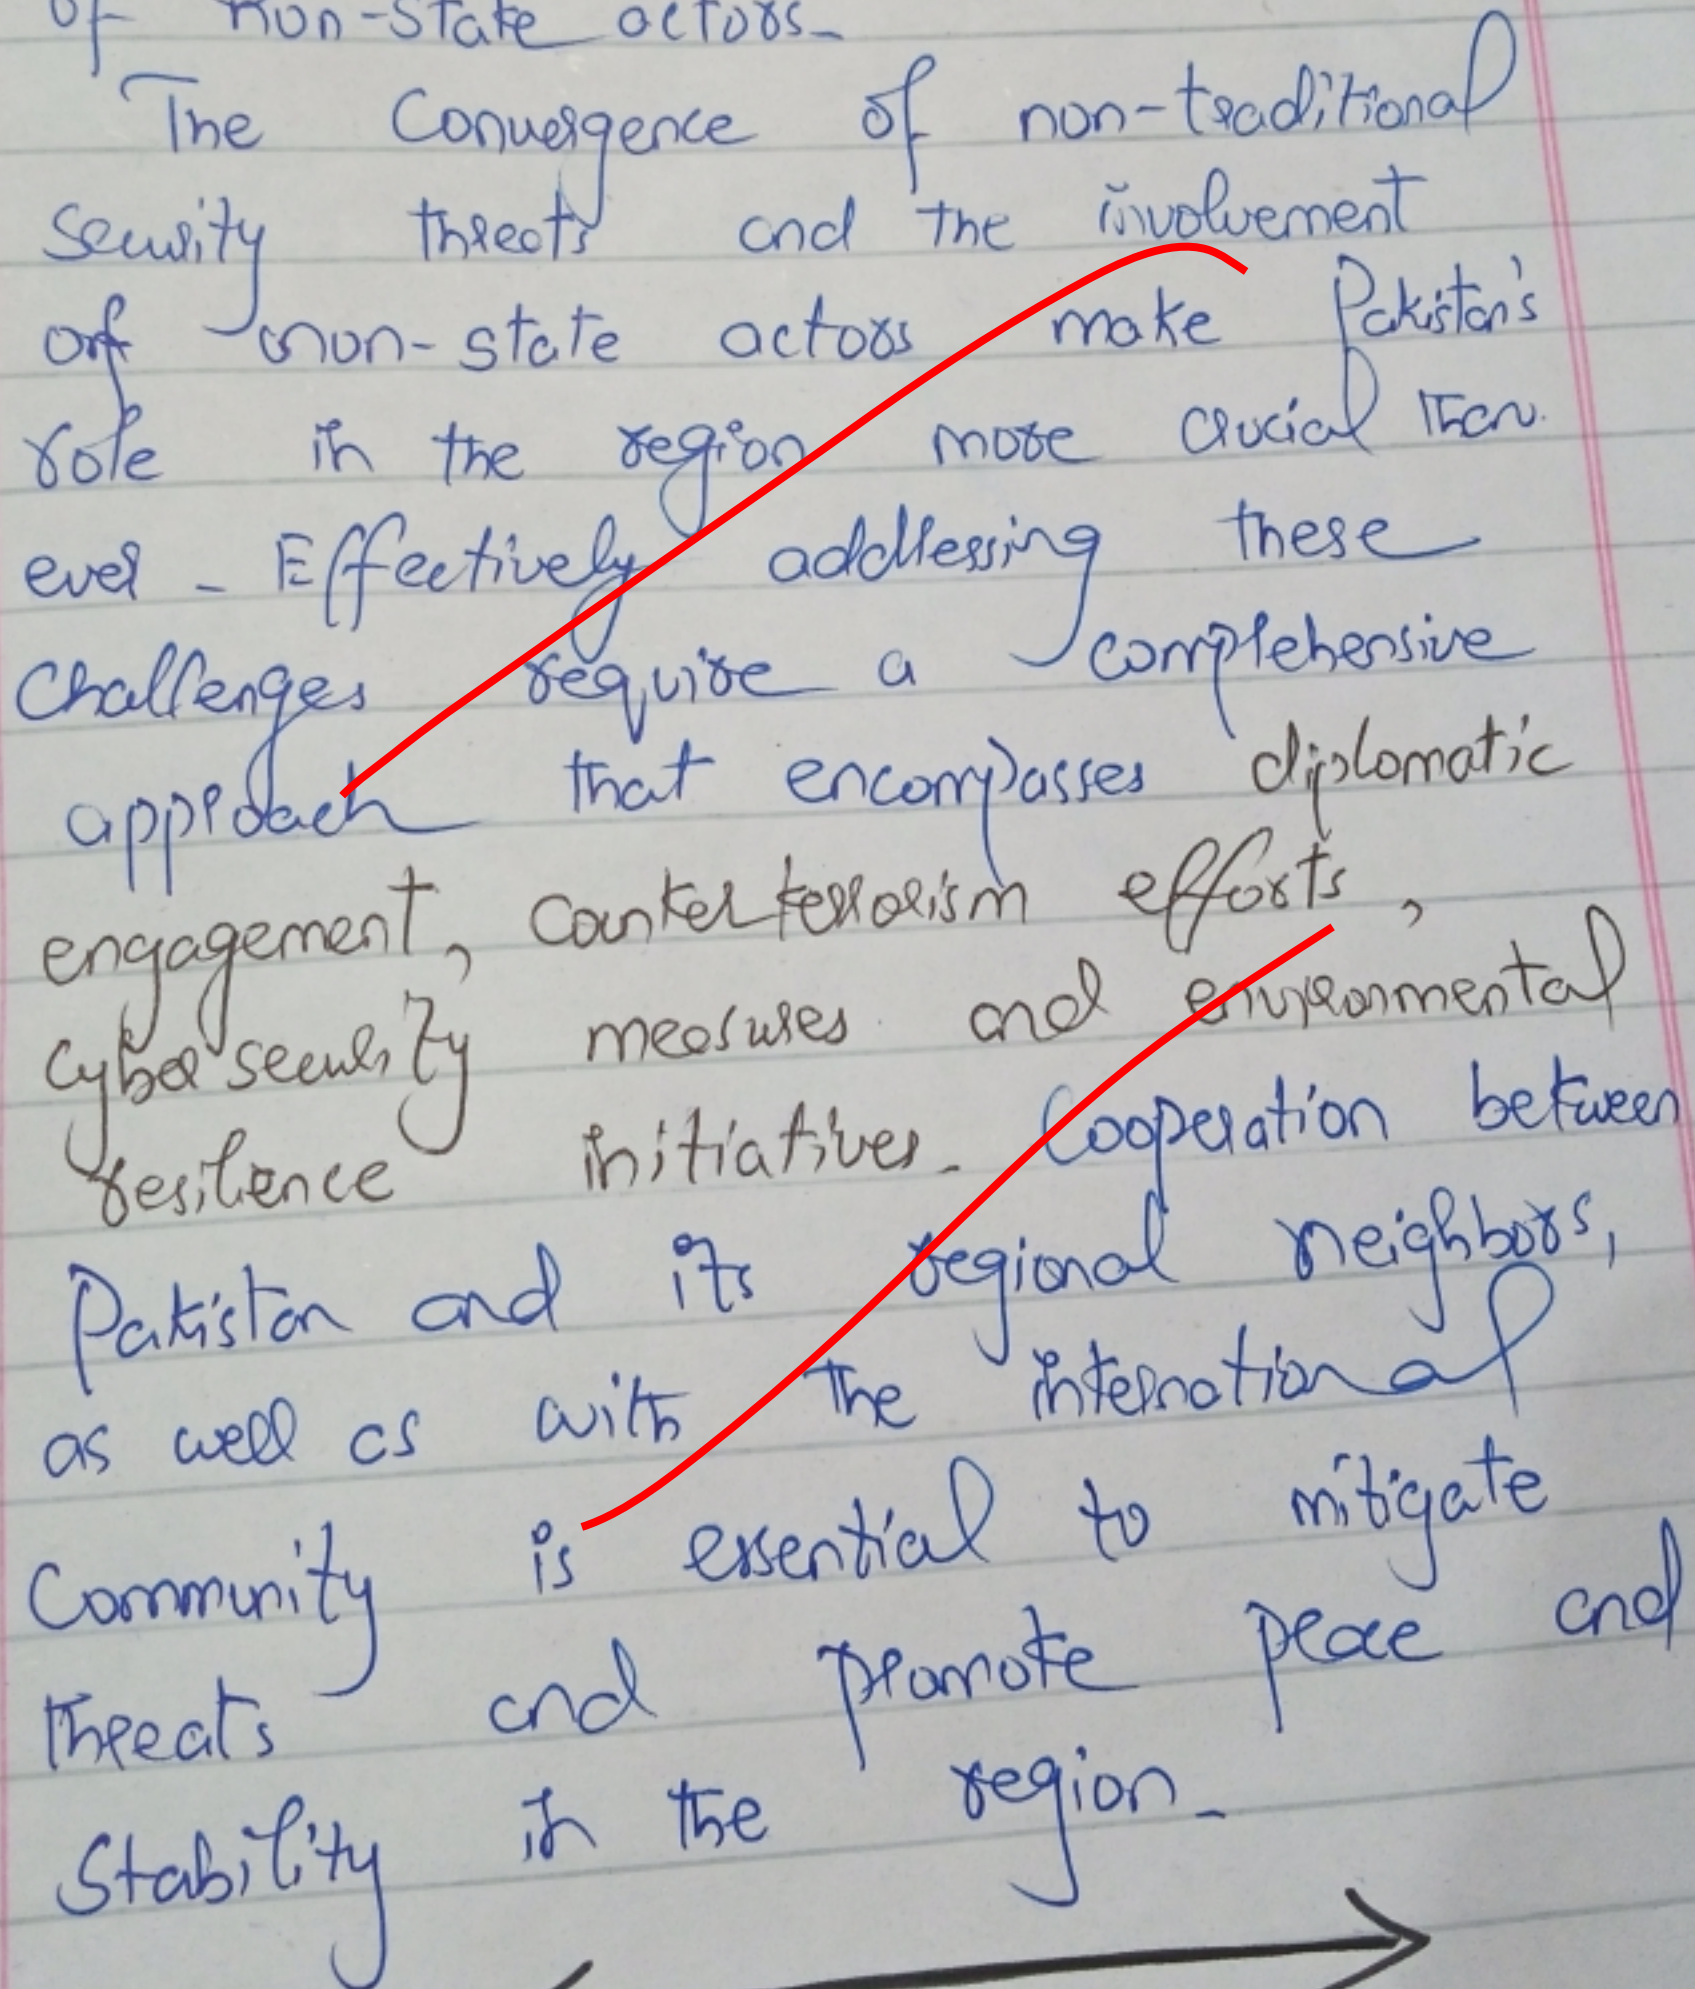 of non-state actors.
The Convergence of non-traditional
security threats and the involvement
of non-state actors make Pakistan's
role in the region more crucial than
ever. Effectively addressing these
challenges require a comprehensive
approach that encompasses diplomatic
engagement, counterterrorism efforts,
cybersecurity measures and environmental
resilience initiatives. Cooperation between
Pakistan and its regional neighbors,
as well as with the international
Community is essential to mitigate
threats and promote peace and
Stability in the region.